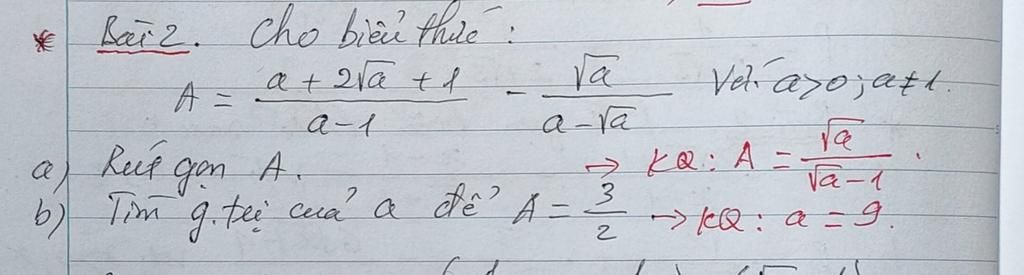 * Bài 2. Cho biểu thức:
A = (a + 2√a + 1)/(a - 1) - √a/(a - √a) Với a > 0; a ≠ 1.
a) Rút gọn A. → KQ: A = √a/(√a - 1).
b) Tìm g.trị của a để A = 3/2 → KQ: a = 9.